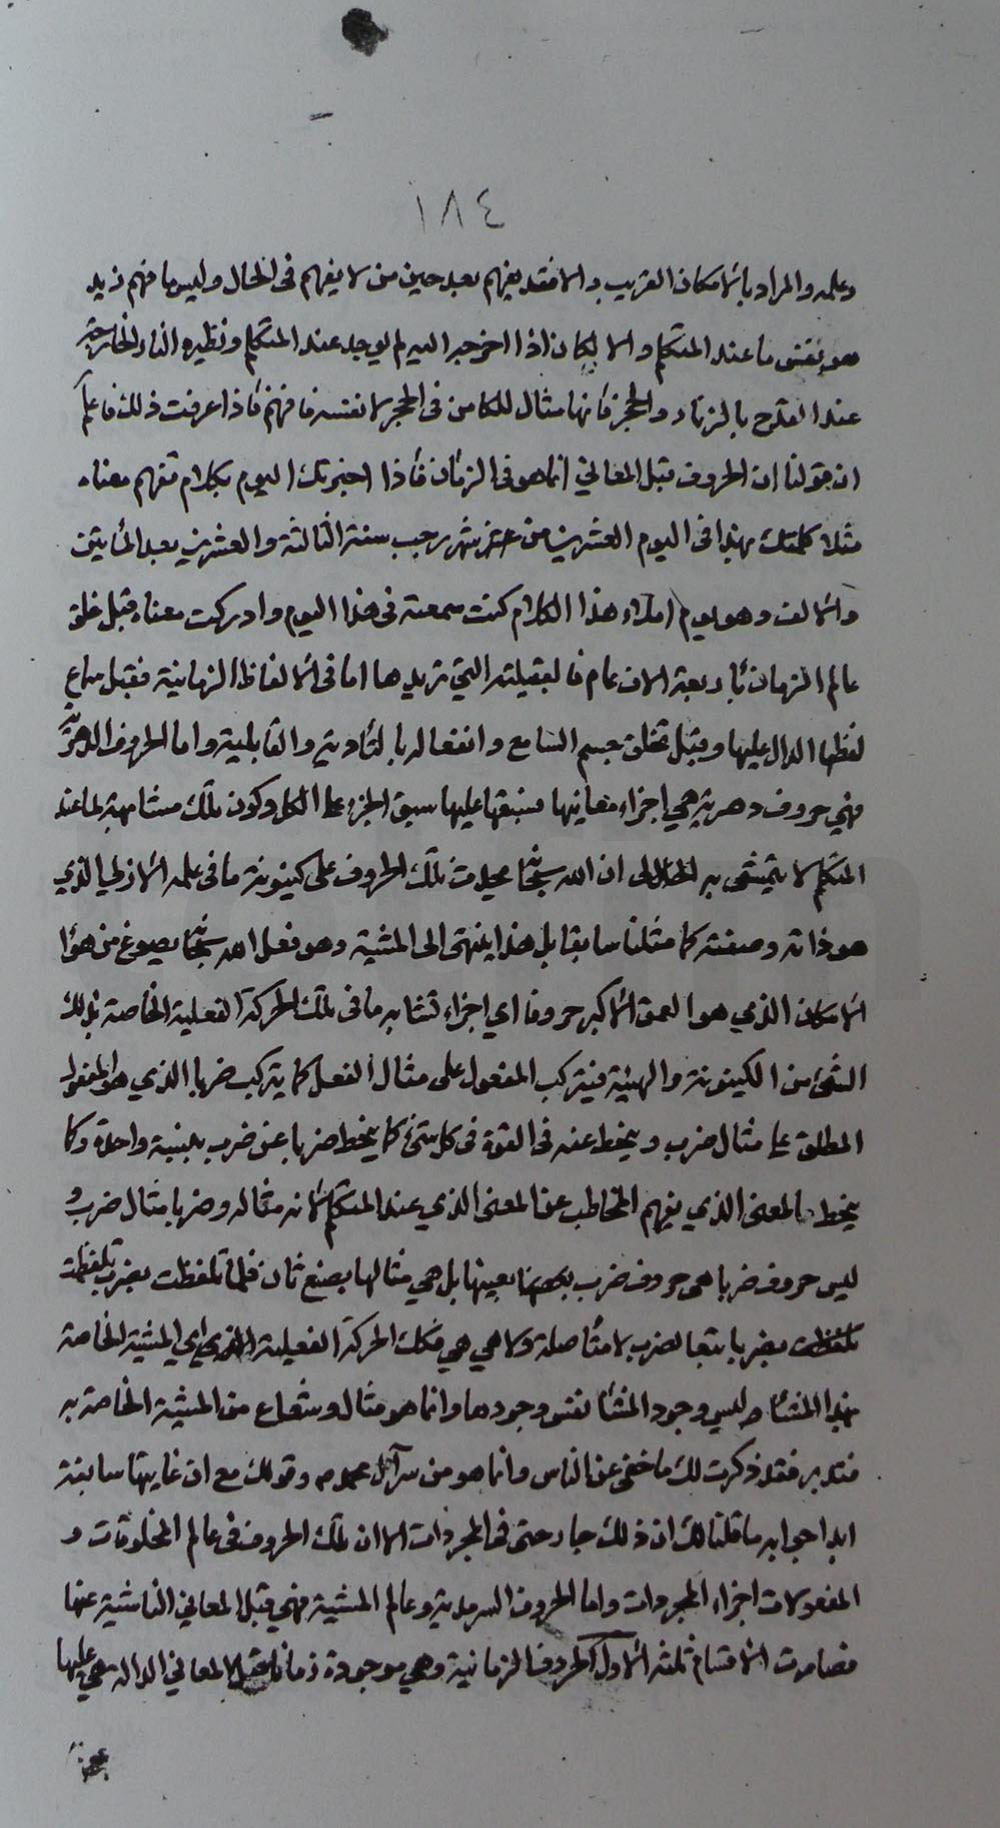 ١٨٤
وعلمه والمراد بالامكان القريب والا فقد يفهم بعد حين من لا يفهم فى الحال وليس ما فهم زيد
هو نفس ما عند المتكلم والا لكان اذا اخرجه اليه لم يوجد عند المتكلم ونظيره النار الخارجة
عند القدح بالزناد والحجر فانها مثال للكامن فى الحجر لا نفسه فافهم فاذا عرفت ذلك فاعلم
ان قولنا ان الحروف قبل المعانى انما هو فى الزمان فاذا اخبرتك اليوم بكلام تفهم معناه
مثلا كلمتك بهذا فى اليوم العشرين من شهر رجب سنة الثالثة والعشرين بعد المأتين
والالف وهو يوم املاء هذا الكلام كنت سمعته فى هذا اليوم وادركت معناه قبل خلق
عالم الزمان باربعة الاف عام فالقبلية التى تريدها اما فى الالفاظ الزمانية فقبل سماع
لفظها الدال عليها وقبل تخلق جسم السامع وانفعاله بالتأدية والقابلية واما الحروف الدهرية
فهى حروف دهرية هى اجزاء معانيها فسبقها عليها سبق الجزء على الكل وكون تلك مشابهة لما عند
المتكلم لا يتمشى به الحال الى ان الله سبحانه يحدث تلك الحروف على كينونة ما فى علمه الازلى الذي
هو ذاته وصفته كما مثلنا سابقا بل هذا ينتهى الى المشية وهو فعل الله سبحانه يصوغ من هواء
الامكان الذي هو العمق الاكبر حروفا اي اجزاء تشابه ما فى تلك الحركة الفعلية الخاصة بذلك
الشئ من الكينونة والهيئة فيتركب المفعول على مثال الفعل كما يتركب ضربا الذي هو المفعول
المطلق على مثال ضرب وينحط عنه فى القوة فى كل شئ كما ينحط ضربا عن ضرب برتبة واحدة وكما
ينحط المعنى الذي يفهم المخاطب عن المعنى الذي عند المتكلم لانه مثاله وضربا مثال ضرب و
ليس حروف ضربا هى حروف ضرب بعينها بل هى مثالها بصنع ثان فلما تلفظت بضرب تلفظت
تلفظت بضربا تبعا لضرب لا متأصلة ولا هى هى فكك الحركة الفعلية اي المشية الخاصة
بهذا المنشأ وليس وجود المنشأ نفس وجودها وانما هو مثال وشعاع من المشية الخاصة به
فتدبر فقد ذكرت لك ما خفى عن الناس وانما هو من سر آل محمد وقولك مع ان غايتها سابقة
ابدا جوابه ما قلنا لك ان ذلك جار حتى فى المجردات الا ان تلك الحروف فى عالم المخلوقات و
المفعولات اجزاء المجردات واما الحروف السرمدية وعالم المشية فهى قبل المعانى الناشية عنها
فصارت الاقسام ثلثة الاول الحروف الزمانية وهى موجودة زمانا قبل المعانى الدالة هى عليها